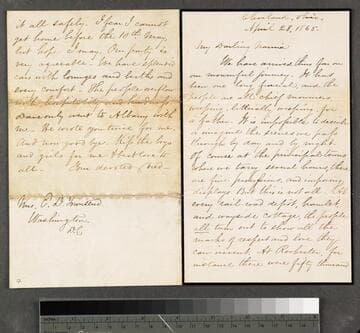 it all safely. I fear I cannot
get home before the 10th May,
but hope I may. Our party is
very agreeable. We have splendid
cars with lounges and berths and
every comfort. The people overflow
with hospitality and kindness
Dave only went to Albany with
me. He wrote you twice for me.
And now good bye. Kiss the boys
and girls for me & best love to
all. Your devoted Ned
Mrs. E. D. Townsend
Washington
D.C.
Cleveland, Ohio,
April 28, 1865.
My Darling
We have arrived thus far on
our mournful journey. It has
been one long funeral, and the
people are the chief mourners
weeping, literally, weeping for
a father. It is impossible to describe
or imagine the scenes we pass
through by day and by night.
Of course at the principal towns
where we tarry several hours, there
are fine, profuse, and imposing
displays. But this is not all. At
every rail road depot, hamlet,
and wayside cottage, the people
all turn out to show all the
marks of respect and love they
can invent. At Rochester, for
instance there were fifty thousand